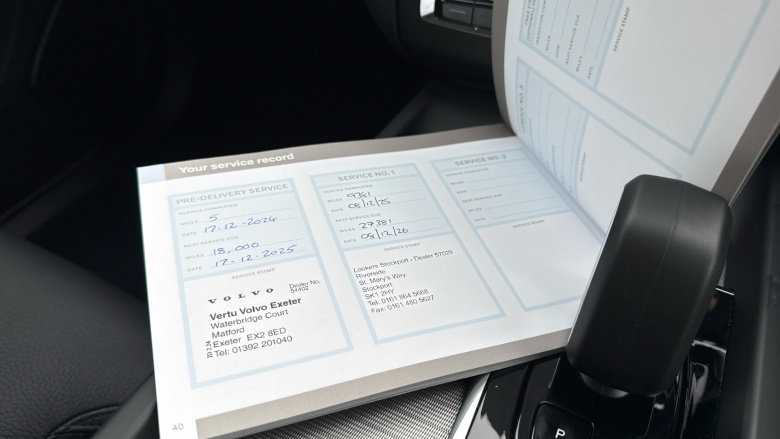 Your service record
PRE-DELIVERY SERVICE
SERVICE COMPLETED
MILES 5
DATE 17-12-2024
NEXT SERVICE DUE
MILES 18,000
DATE 17-12-2025
SERVICE STAMP
VOLVO Dealer No. 54402
Vertu Volvo Exeter
Waterbridge Court
Matford
Exeter EX2 8ED
Tel: 01392 201040
SERVICE NO. 1
SERVICE COMPLETED
MILES 9381
DATE 08/12/25
NEXT SERVICE DUE
MILES 27381
DATE 08/12/26
SERVICE STAMP
Lookers Stockport - Dealer 57029
Riverside
St. Mary's Way
Stockport
SK1 2HY
Tel: 0161 864 5668
Fax: 0161 480 5627
SERVICE NO. 2
SERVICE COMPLETED
MILES
DATE
NEXT SERVICE DUE
MILES
DATE
SERVICE STAMP
MILES
NEXT SERVICE DUE
MILES
DATE
SERVICE STAMP
40
P